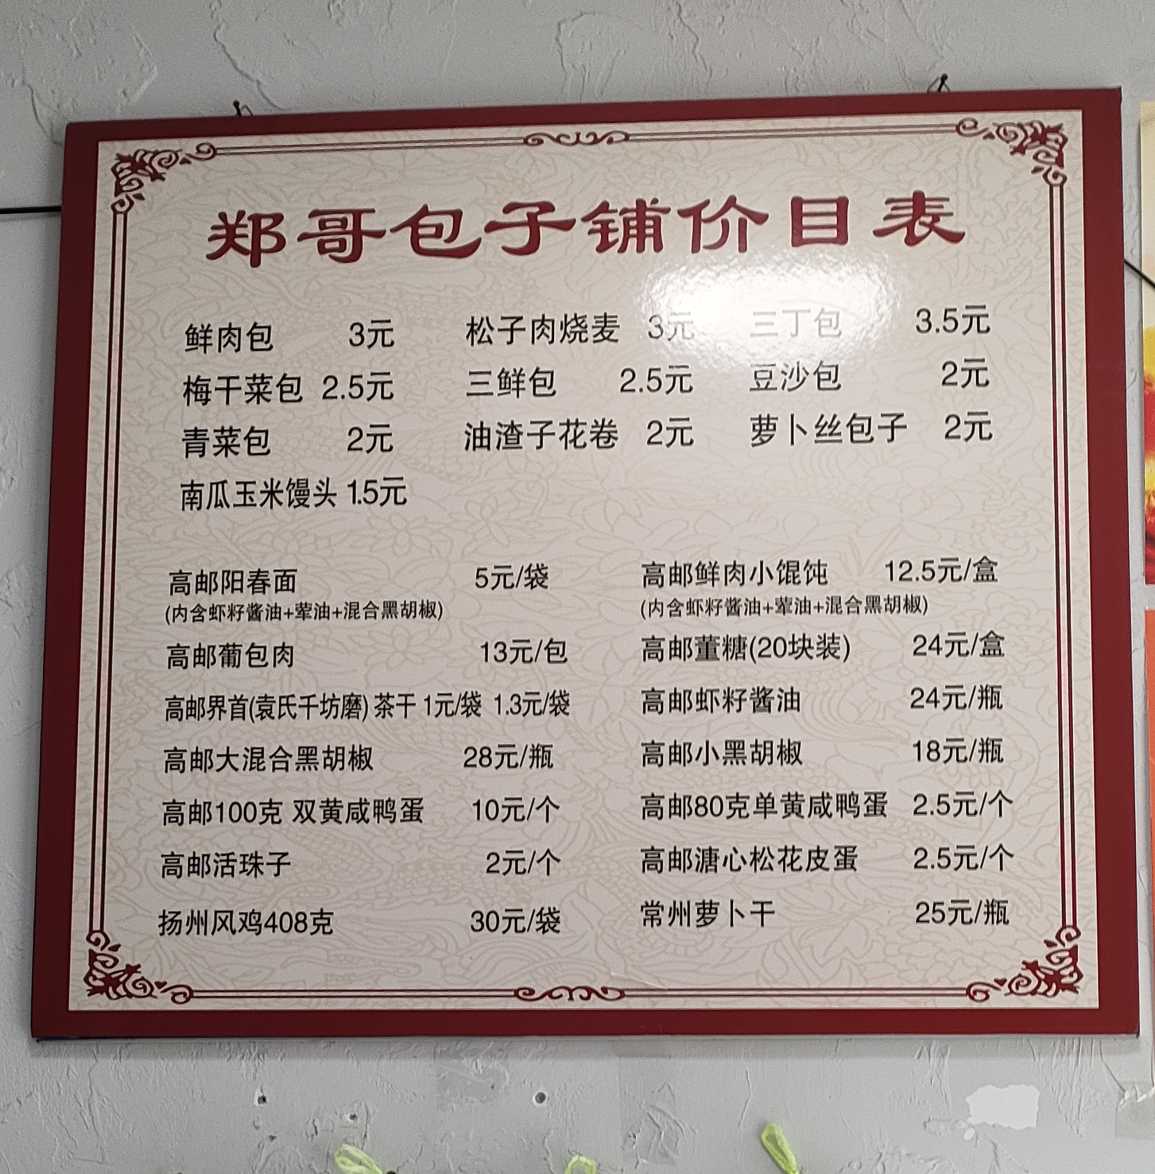 郑哥包子铺价目表
鲜肉包 3元 松子肉烧麦 3元 三丁包 3.5元
梅干菜包 2.5元 三鲜包 2.5元 豆沙包 2元
青菜包 2元 油渣子花卷 2元 萝卜丝包子 2元
南瓜玉米馒头 1.5元
高邮阳春面 5元/袋 高邮鲜肉小馄饨 12.5元/盒
(内含虾籽酱油+荤油+混合黑胡椒) (内含虾籽酱油+荤油+混合黑胡椒)
高邮葡包肉 13元/包 高邮董糖(20块装) 24元/盒
高邮界首(袁氏千坊磨) 茶干 1元/袋 1.3元/袋 高邮虾籽酱油 24元/瓶
高邮大混合黑胡椒 28元/瓶 高邮小黑胡椒 18元/瓶
高邮100克 双黄咸鸭蛋 10元/个 高邮80克单黄咸鸭蛋 2.5元/个
高邮活珠子 2元/个 高邮溏心松花皮蛋 2.5元/个
扬州风鸡408克 30元/袋 常州萝卜干 25元/瓶